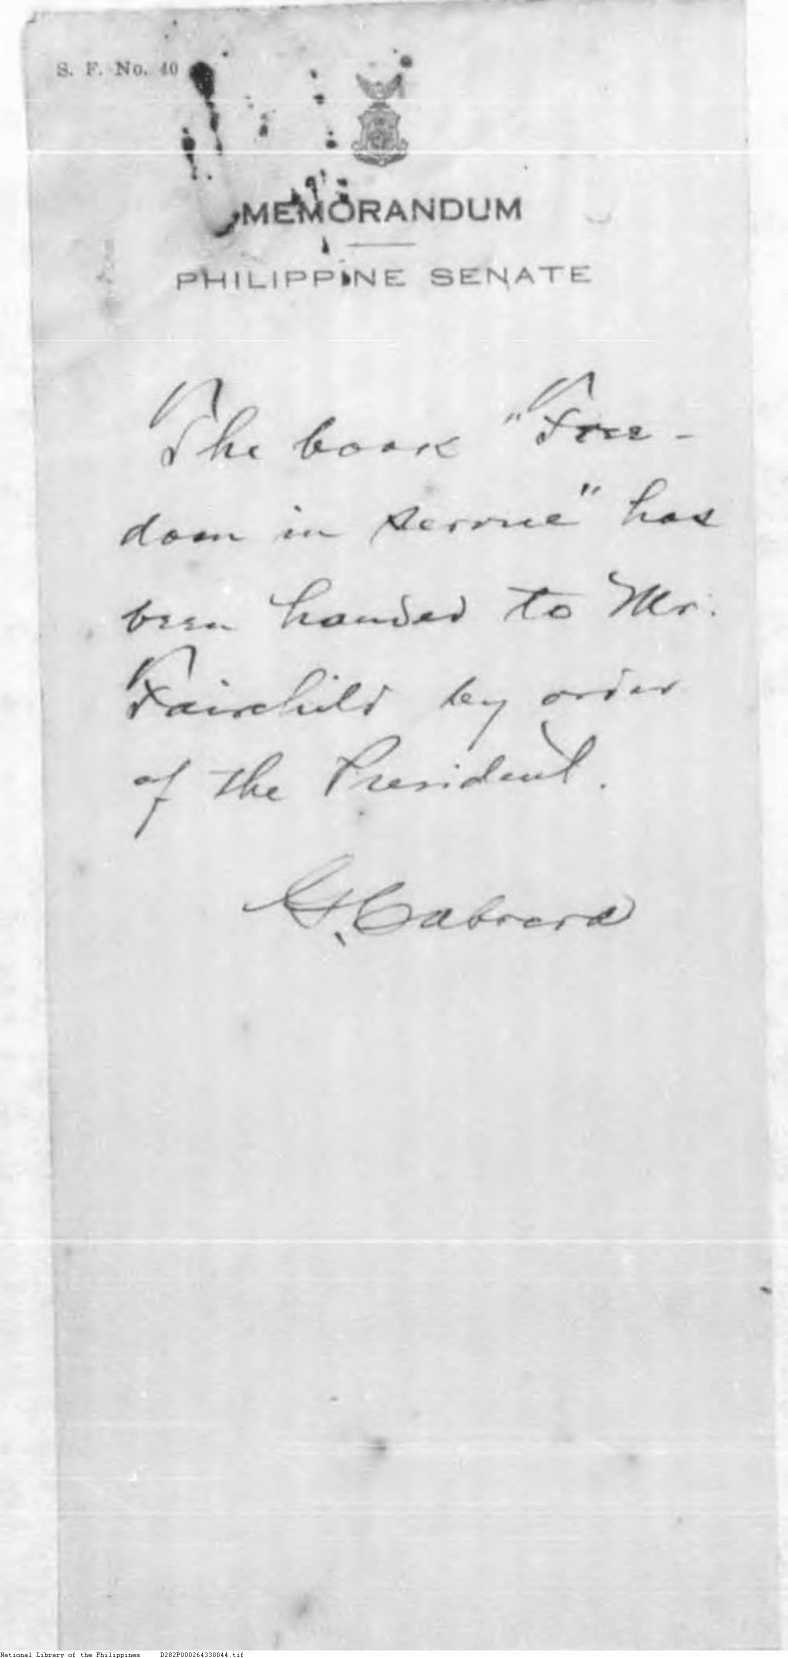 S. F. No. 40
MEMORANDUM
PHILIPPINE SENATE
The book "Free-
dom in service" has
been handed to Mr.
Fairchild by order
of the President.
G. Cabrera
National Library of the Philippines D282P000264338044.tif